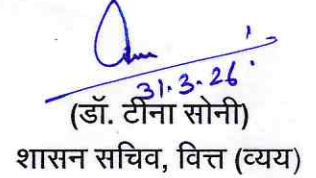 31.3.26
(डॉ. टीना सोनी)
शासन सचिव, वित्त (व्यय)